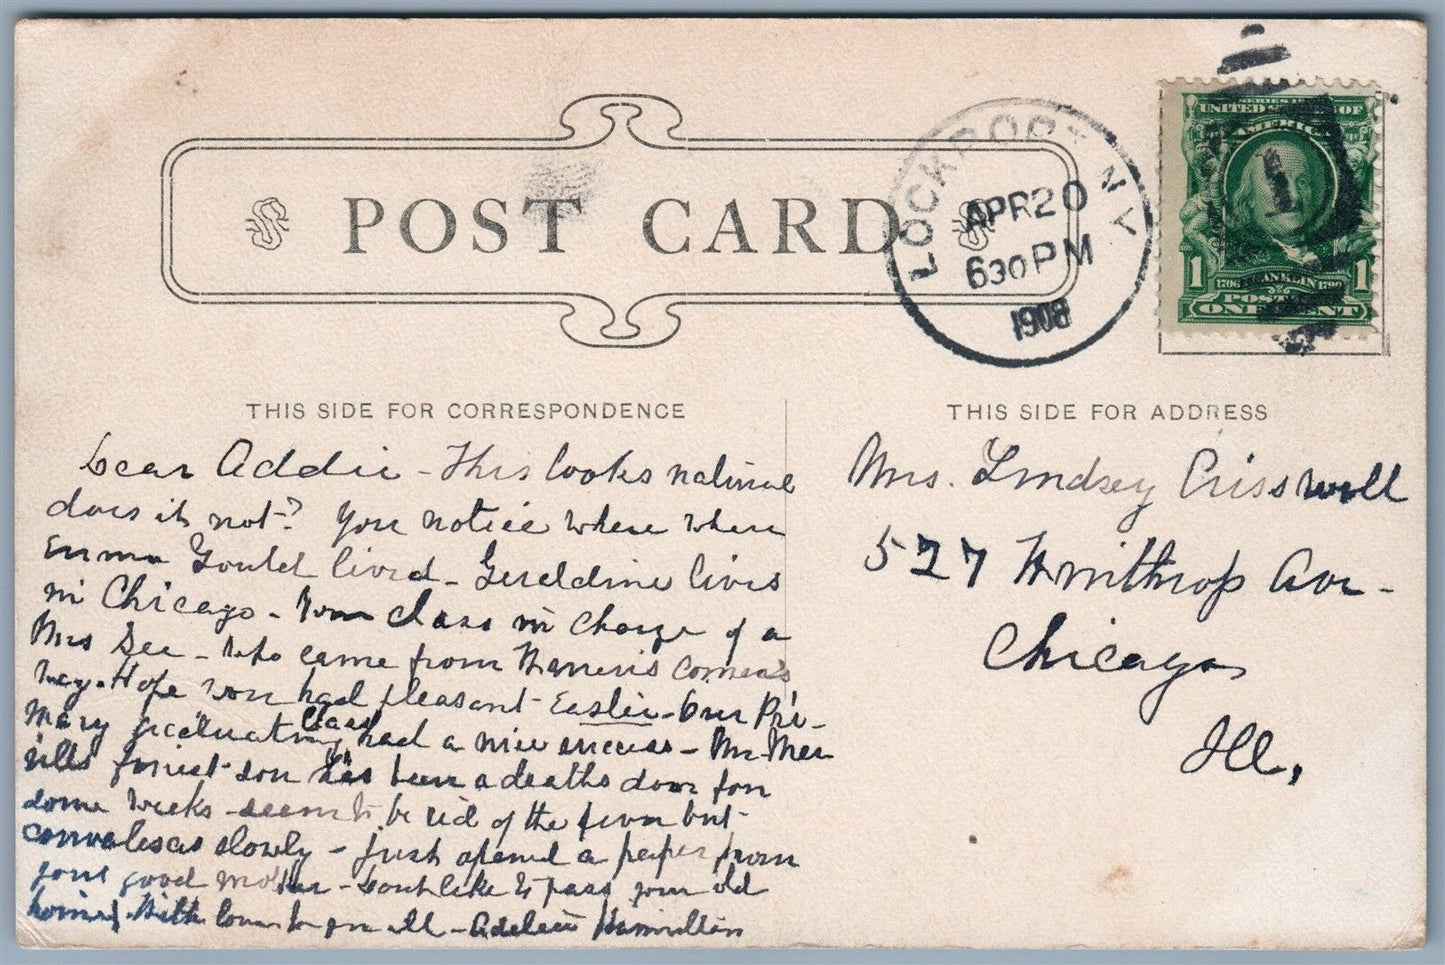 POST CARD
LOCKPORT N.Y.
APR 20
630 PM
1908
SERIES 1902
UNITED STATES OF
AMERICA
1 FRANKLIN 1
1706 1790
POSTAGE
ONE CENT
THIS SIDE FOR CORRESPONDENCE
Dear Addie - This looks natural
does it not? You notice where where
Emma Gould lived - Geraldine lives
in Chicago - Your class in charge of a
Mrs Gee - who came from Warren's Corners
way. Hope you had pleasant Easter - Our Pri-
mary graduating class had a nice success - Mr Mer
ills finest son has been a deaths door for
some weeks - seems to be rid of the fever but
convalesces slowly - Just opened a paper from
your good mother - Dont like to pass your old
home. With love to you all - Adelein Hamilton
THIS SIDE FOR ADDRESS
Mrs. Lindsey Crisswell
527 Winthrop Ave -
Chicago
Ill.